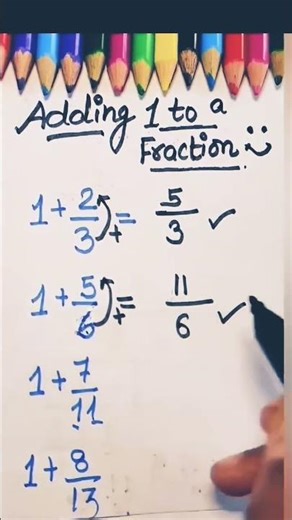 Adding 1 to a
Fraction
1 + 2/3 + = 5/3 ✓
1 + 5/6 + = 11/6 ✓
1 + 7/11
1 + 8/13